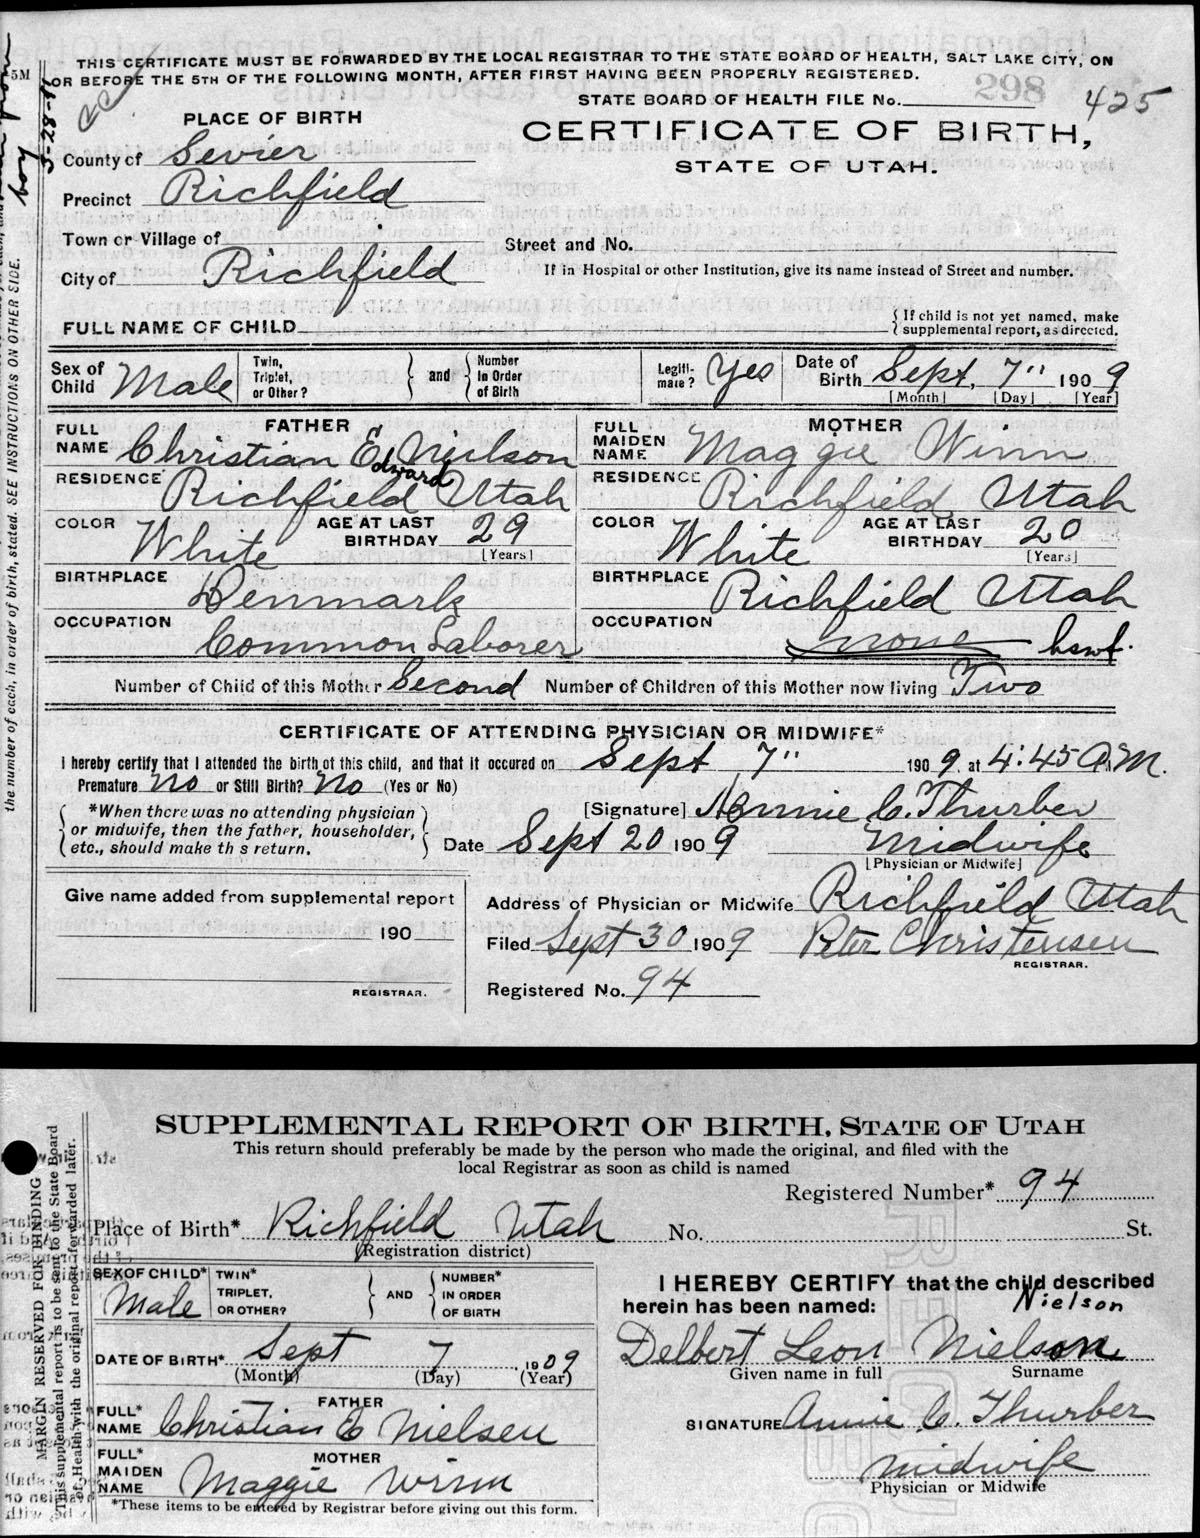 THIS CERTIFICATE MUST BE FORWARDED BY THE LOCAL REGISTRAR TO THE STATE BOARD OF HEALTH, SALT LAKE CITY, ON
OR BEFORE THE 5TH OF THE FOLLOWING MONTH, AFTER FIRST HAVING BEEN PROPERLY REGISTERED.
5M
298
STATE BOARD OF HEALTH FILE No. 425
PLACE OF BIRTH
CERTIFICATE OF BIRTH,
STATE OF UTAH.
County of Sevier
Precinct Richfield
Town or Village of
Street and No.
City of Richfield
If in Hospital or other Institution, give its name instead of Street and number.
FULL NAME OF CHILD
{ If child is not yet named, make
supplemental report, as directed.
Sex of Child Male
Twin, Triplet, or Other?
} and {
Number In Order of Birth
Legitimate? Yes
Date of Birth Sept, 7" 1909
[Month] [Day] [Year]
FATHER
FULL NAME Christian E Neilson
Edward
RESIDENCE Richfield Utah
COLOR White
AGE AT LAST BIRTHDAY 29
[Years]
BIRTHPLACE Denmark
OCCUPATION Common Laborer
MOTHER
FULL MAIDEN NAME Maggie Winn
RESIDENCE Richfield Utah
COLOR White
AGE AT LAST BIRTHDAY 20
[Years]
BIRTHPLACE Richfield Utah
OCCUPATION none hswf.
Number of Child of this Mother Second Number of Children of this Mother now living Two
CERTIFICATE OF ATTENDING PHYSICIAN OR MIDWIFE*
I hereby certify that I attended the birth of this child, and that it occured on Sept 7" 1909. at 4:45 A.M.
Premature No or Still Birth? No (Yes or No)
{ *When there was no attending physician
or midwife, then the father, householder,
etc., should make th s return. }
[Signature] Annie C. Thurber
Date Sept 20 1909 Midwife
[Physician or Midwife]
Give name added from supplemental report
190
REGISTRAR.
Address of Physician or Midwife Richfield Utah
Filed Sept 30 1909 Peter Christensen
REGISTRAR.
Registered No. 94
the number of each, in order of birth, stated. SEE INSTRUCTIONS ON OTHER SIDE.
SUPPLEMENTAL REPORT OF BIRTH, STATE OF UTAH
This return should preferably be made by the person who made the original, and filed with the
local Registrar as soon as child is named
Registered Number* 94
Place of Birth* Richfield Utah No. St.
(Registration district)
SEX OF CHILD* Male
TWIN* TRIPLET, OR OTHER?
} AND {
NUMBER* IN ORDER OF BIRTH
DATE OF BIRTH* Sept 7 , 1909
(Month) (Day) (Year)
FATHER
FULL* NAME Christian E Nielsen
MOTHER
FULL* MAIDEN NAME Maggie Winn
*These items to be entered by Registrar before giving out this form.
I HEREBY CERTIFY that the child described
herein has been named: Nielson
Delbert Leon Nielson
Given name in full Surname
SIGNATURE Annie C. Thurber
Midwife
Physician or Midwife
MARGIN RESERVED FOR BINDING
This supplemental report is to be sent to the State Board
of Health with the original report forwarded later.